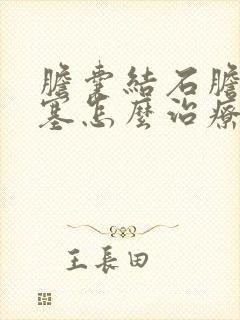 膽囊結石膽
塞怎麼治療
王長田